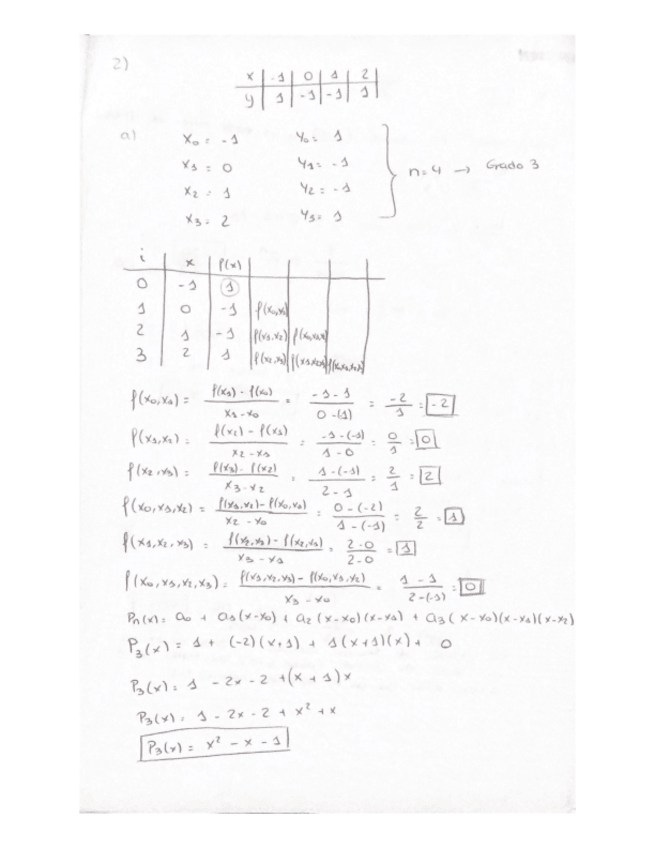 2)
x | -1 | 0 | 1 | 2
y | 1 | -1 | -1 | 1
a)
x₀ = -1 y₀ = 1
x₁ = 0 y₁ = -1
x₂ = 1 y₂ = -1
x₃ = 2 y₃ = 1
n=4 → Grado 3
i | x | f(x)
0 | -1 | 1
1 | 0 | -1 | f(x₀,x₁)
2 | 1 | -1 | f(x₁,x₂) | f(x₀,x₁,x₂)
3 | 2 | 1 | f(x₂,x₃) | f(x₁,x₂,x₃) | f(x₀,x₁,x₂,x₃)
f(x₀,x₁) = (f(x₁) - f(x₀)) / (x₁ - x₀) = (-1 - 1) / (0 - (1)) = -2/1 = -2
f(x₁,x₂) = (f(x₂) - f(x₁)) / (x₂ - x₁) = (-1 - (-1)) / (1 - 0) = 0/1 = 0
f(x₂,x₃) = (f(x₃) - f(x₂)) / (x₃ - x₂) = (1 - (-1)) / (2 - 1) = 2/1 = 2
f(x₀,x₁,x₂) = (f(x₁,x₂) - f(x₀,x₁)) / (x₂ - x₀) = (0 - (-2)) / (1 - (-1)) = 2/2 = 1
f(x₁,x₂,x₃) = (f(x₂,x₃) - f(x₂,x₁)) / (x₃ - x₁) = (2-0) / (2-0) = 1
f(x₀,x₁,x₂,x₃) = (f(x₁,x₂,x₃) - f(x₀,x₁,x₂)) / (x₃ - x₀) = (1 - 1) / (2-(-1)) = 0
Pn(x) = a₀ + a₁(x-x₀) + a₂(x-x₀)(x-x₁) + a₃(x-x₀)(x-x₁)(x-x₂)
P₃(x) = 1 + (-2)(x+1) + 1(x+1)(x) + 0
P₃(x) = 1 - 2x - 2 + (x + 1)x
P₃(x) = 1 - 2x - 2 + x² + x
P₃(x) = x² - x - 1